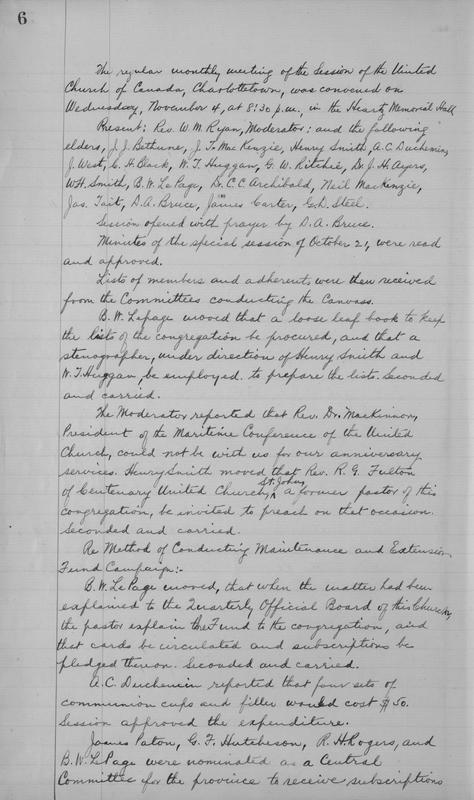 6
The regular monthly meeting of the Session of the United
Church of Canada, Charlottetown, was convened on
Wednesday, November 4, at 8:30 p.m., in the Heartz Memorial Hall
Present: Rev. W. M. Ryan, Moderator: and the following
elders, J. J. Bethune, J. T. MacKenzie, Henry Smith, A. C. Duchemin,
J. West, C. H. Black, W. T. Huggan, G. W. Ritchie, Dr. J. H. Ayers,
W. H. Smith, B. W. LePage, Dr. C. C. Archibald, Neil MacKenzie,
Jas. Tait, D. A. Bruce, James Carter, G. D. Steel.
Session opened with prayer by D. A. Bruce.
Minutes of the special session of October 21, were read
and approved.
Lists of members and adherents, were then received
from the Committees conducting the Canvass.
B. W. Lepage moved that a loose leaf book to keep
the lists of the congregation be procured, and that a
stenographer, under direction of Henry Smith and
W. T. Huggan, be employed. to prepare the lists. Seconded
and carried.
The Moderator reported that Rev. Dr. MacKinnon,
President of the Maritime Conference of the United
Church, could not be with us for our anniversary
services. Henry Smith moved that Rev. R. G. Fulton
of Centenary United Church, St. John, a former pastor of this
congregation, be invited to preach on that occasion.
Seconded and carried.
Re Method of Conducting Maintenance and Extension
Fund Campaign:-
B. W. LePage moved, that when the matter had been
explained to the Quarterly Official Board of this Church,
the pastor explain the Fund to the congregation, and
that cards be circulated and subscriptions be
pledged thereon. Seconded and carried.
A. C. Duchemin reported that four sets of
communion cups and filler would cost $50.
Session approved the expenditure.
James Paton, G. F. Hutcheson, R. H. Rogers, and
B. W. LePage were nominated as a Central
Committee for the province to receive subscriptions